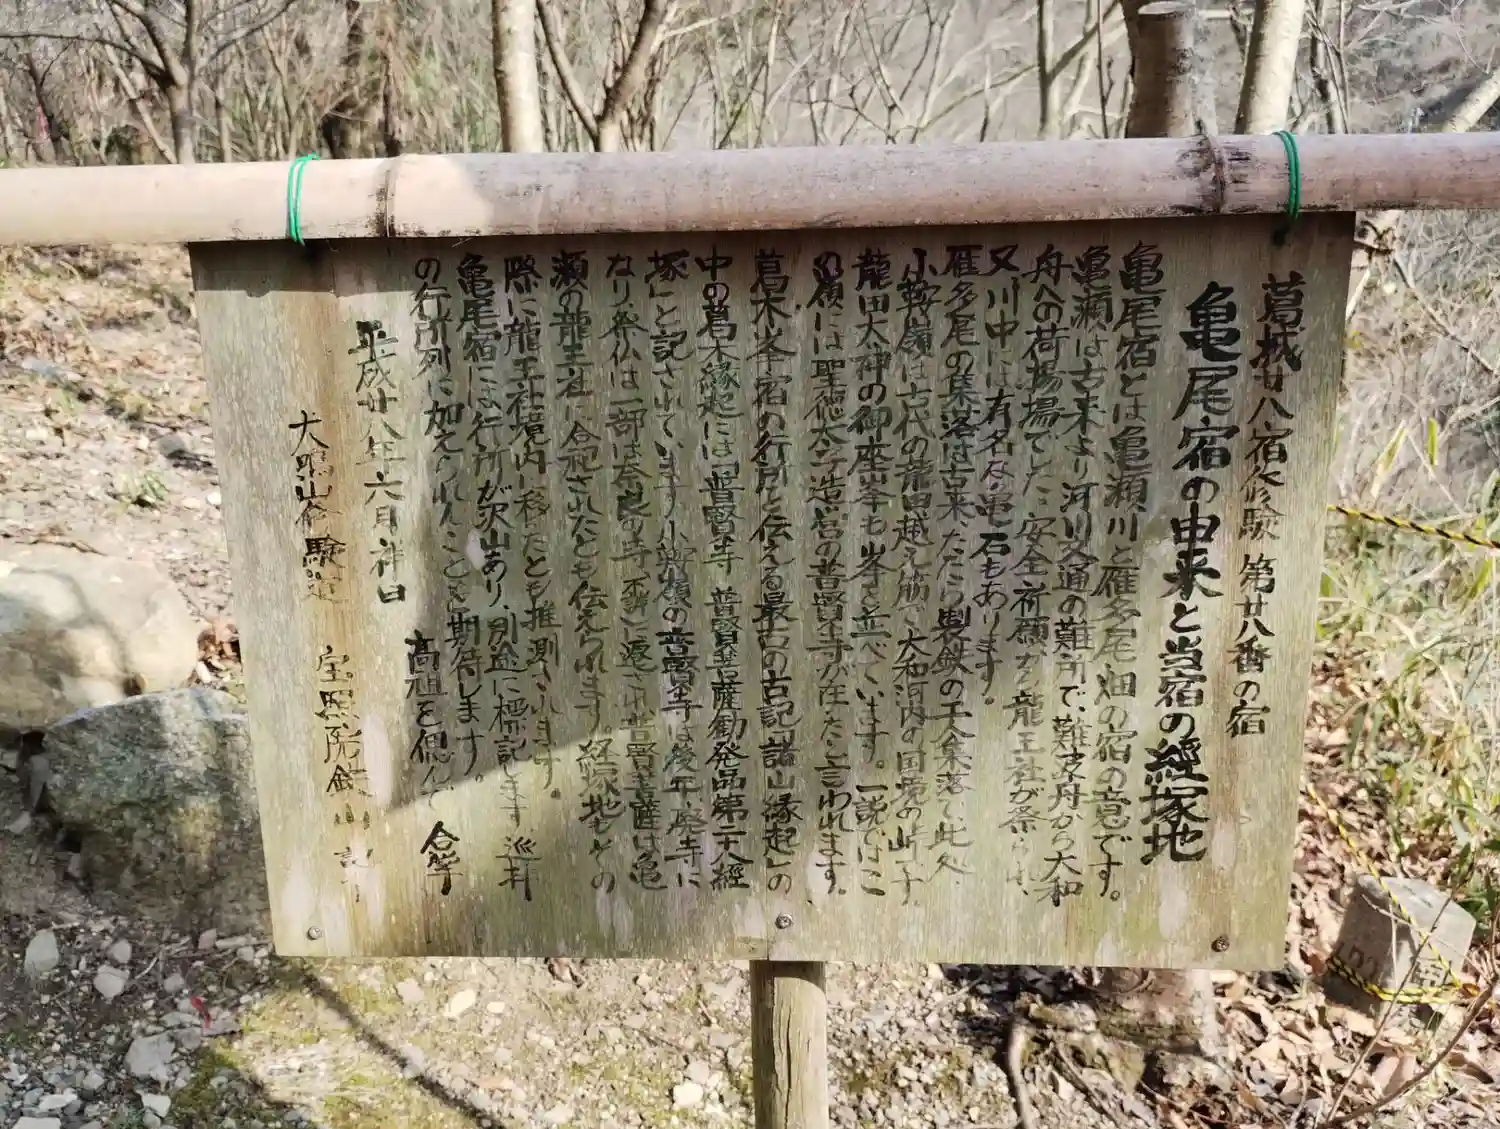 葛城廿八宿修験 第廿八番の宿
亀尾宿の由来と当宿の經塚地
亀尾宿とは亀瀬川と雁多尾畑の宿の意です。
亀瀬は古来より河川交通の難所で、難波舟から大和
舟への荷揚場でした。安全祈願が龍王社が祭られ、
又、川中には有名な亀石もあります。
雁多尾の集落は古来、たたら製鉄の千人集落で、此処
小鞍嶺は古代の龍田越え筋で、大和河内の国境の峠です
龍田大神の御座峯も峯で並べています。一説ではこ
の嶺には聖徳太子造営の普賢寺が在たと言われます。
葛木峯宿の行所と伝える最古の古記「諸山縁起」の
中の葛木縁起には「普賢寺 普賢菩薩勧発品第二十八経
塚」と記されています。小鞍嶺の普賢寺は後年、廃寺に
なり、祭仏は一部は奈良の寺に還され普賢菩薩は亀
瀬の龍王社に合祀されたとも伝えられます。経塚地もその
際に龍王社境内に移したとも推測されます。
亀尾宿には行所が沢山あり、別途に標記します 巡拝
の行所列に加えられんことを期待します。
高祖を偲んで 合掌
平成廿八年六月神日
大峰山修験道 宝照院鉄山 記す